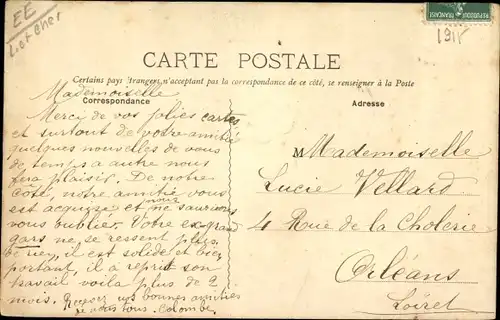 EE
Loir et Cher
REPUBLIQUE FRANÇAISE
1911
CARTE POSTALE
Certains pays étrangers n'acceptant pas la correspondance de ce côté, se renseigner à la Poste
Correspondance
Adresse
Mademoiselle
Merci de vos jolies cartes
et surtout de votre amitié
quelques nouvelles de vous
de temps a autre nous
fera plaisir. De notre
côté, notre amitié vous
est acquise et nous ne saurions
vous oublier. Votre ex-grand
gars ne se ressent plus
de rien, il est solide et bien
portant, il a repris son
travail voila plus de 2
mois. Recevez nos bonnes amitiés
de nous tous. Colombe
M Mademoiselle
Lucie Vellard
4 Rue de la Cholerie
Orléans
Loiret